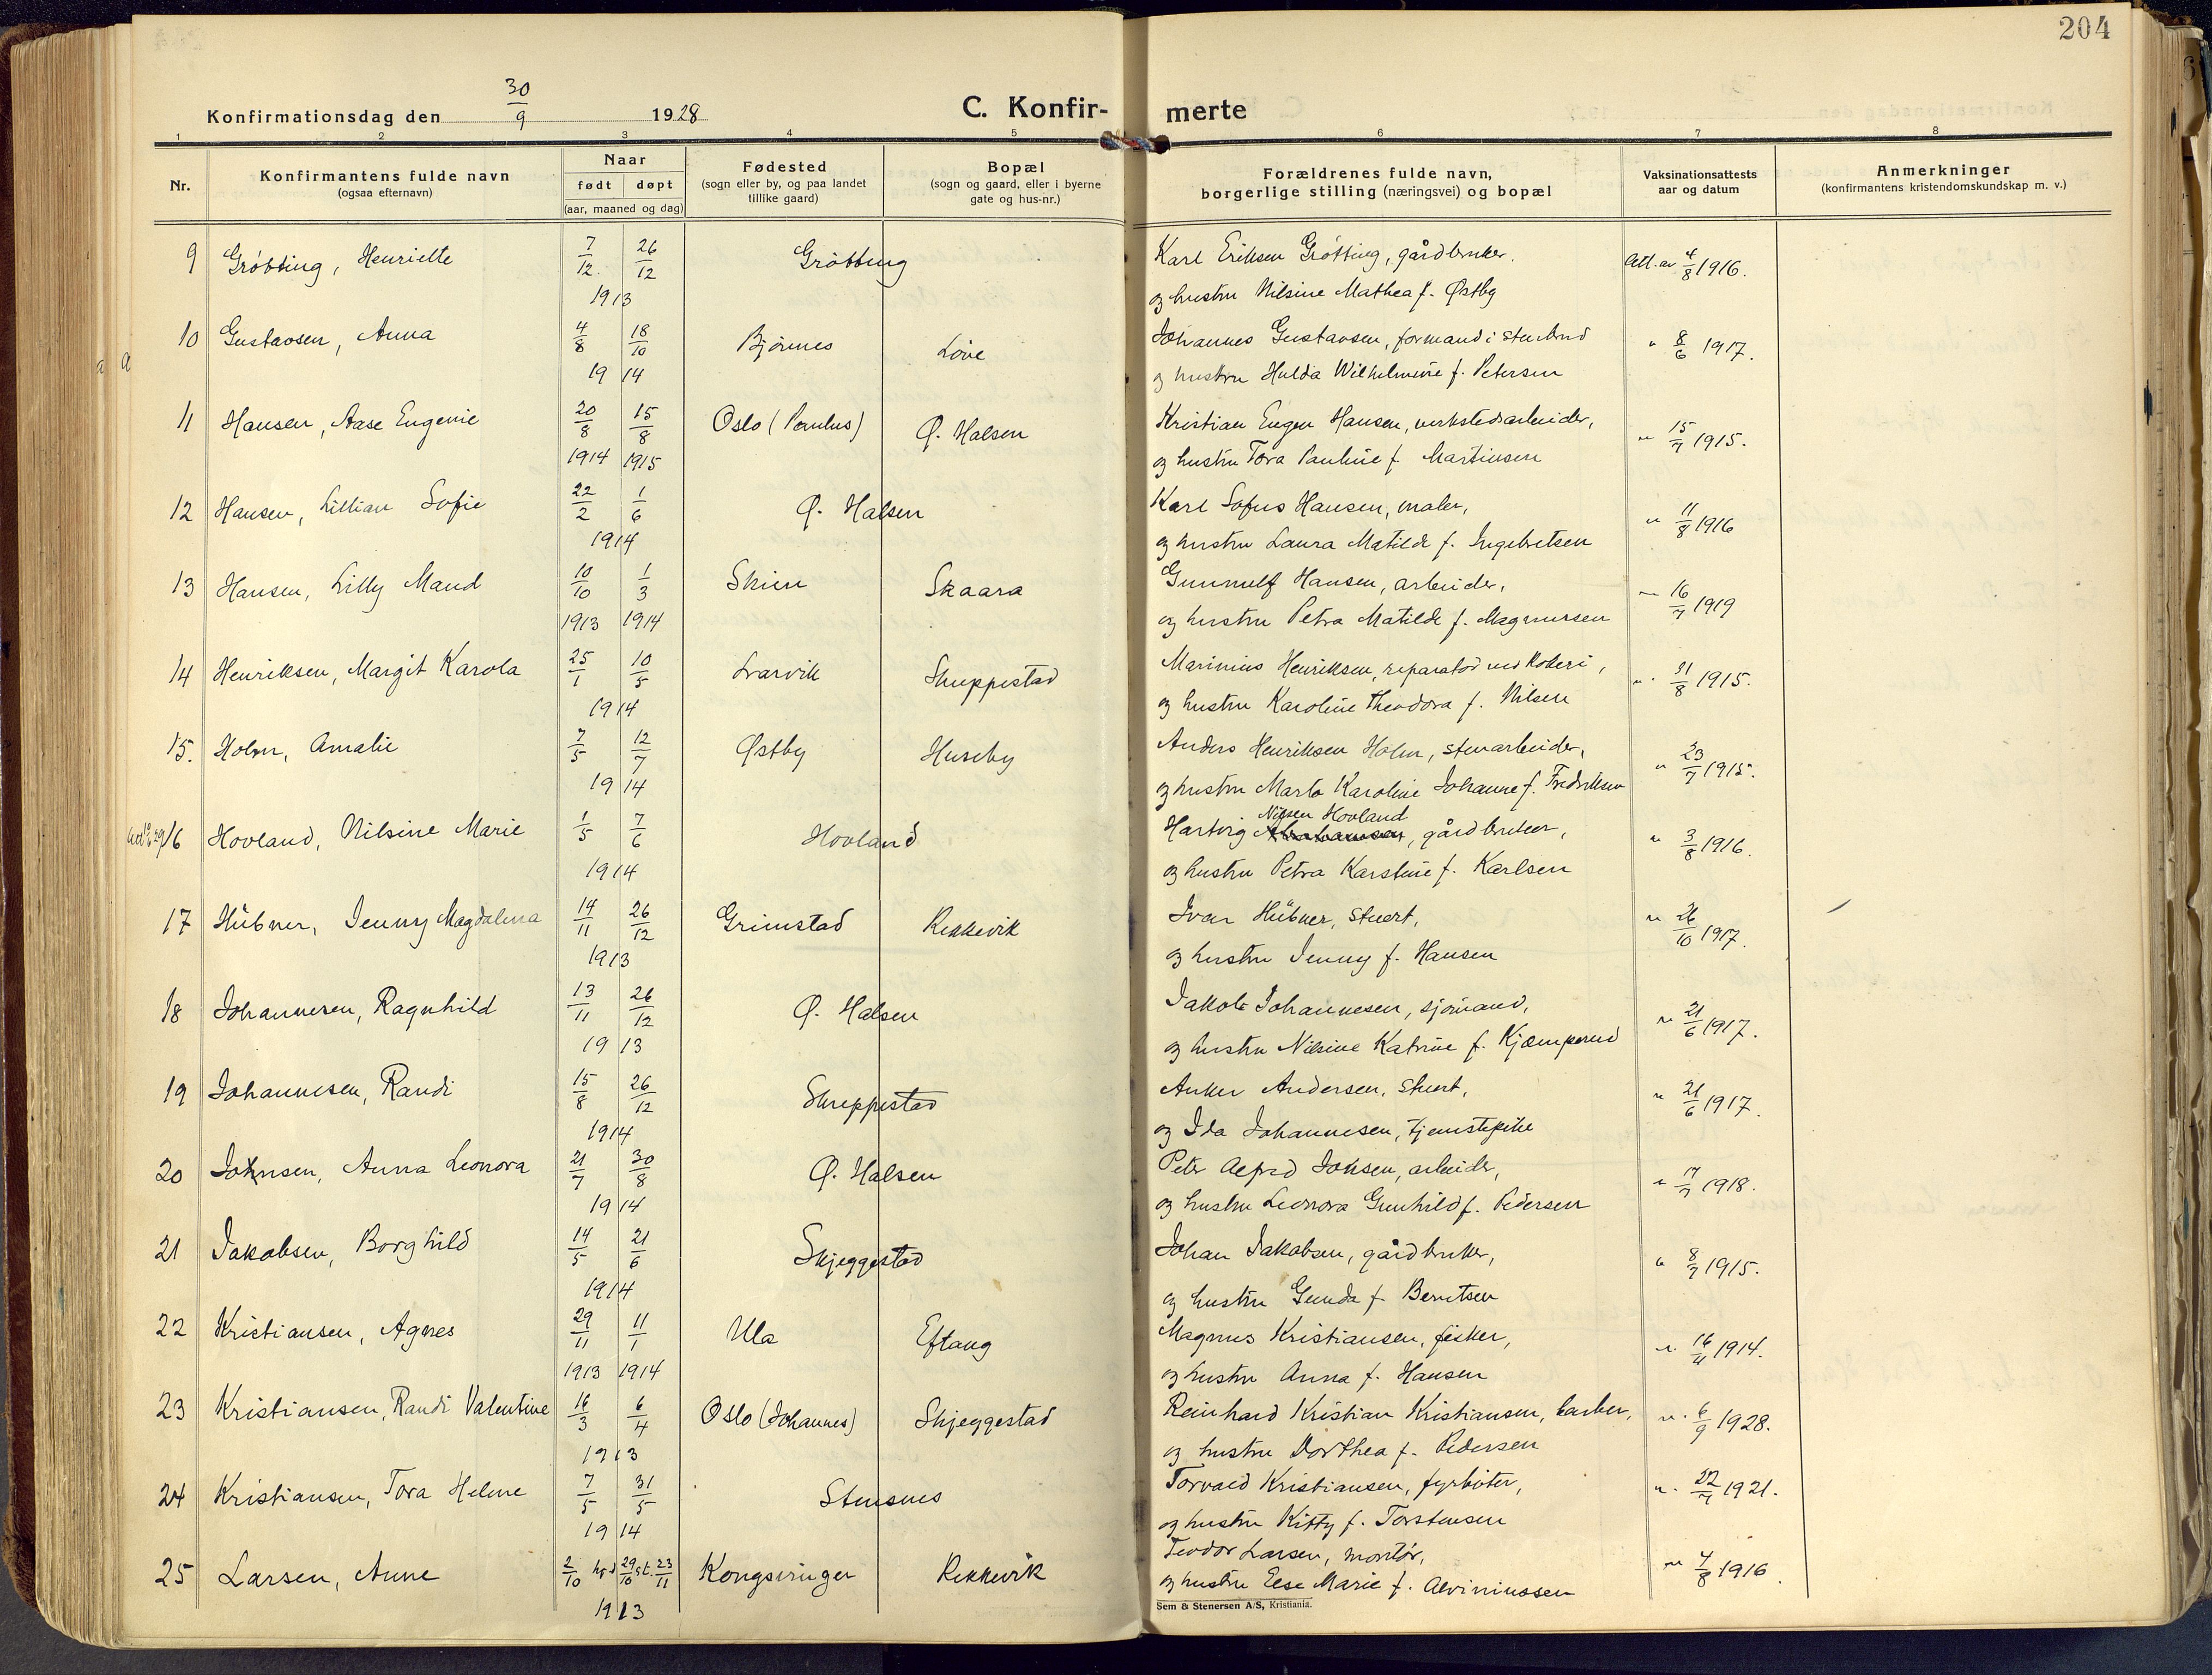 204
30/9
Konfirmationsdag den 1928 C. Konfir- merte
1 2 3 4 5 6 7 8
Nr.
Konfirmantens fulde navn
(ogsaa efternavn)
Naar
født døpt
(aar, maaned og dag)
Fødested
(sogn eller by, og paa landet
tillike gaard)
Bopæl
(sogn og gaard, eller i byerne
gate og hus-nr.)
Forældrenes fulde navn,
borgerlige stilling (næringsvei) og bopæl
Vaksinationsattests
aar og datum
Anmerkninger
(konfirmantens kristendomskundskap m. v.)
9 Grøtting, Henriette 7/12 26/12 Grøtting Karl Eriksen Grøtting, gårdbruker. Att. av 4/8 1916.
1913 og hustru Nilsine Mathea f. Østby
10 Gustavsen, Anna 4/8 18/10 Bjørnes Løve Johannes Gustavsen, formand i stenbrud " 8/6 1917.
1914 og hustru Hulda Wilhelmine f. Petersen
11 Hansen, Aase Eugenie 20/8 15/8 Oslo (Paulus) Ø. Halsen Kristian Eugen Hansen, verkstedsarbeider, " 15/7 1915.
1914 1915 og hustru Tora Pauline f. Martinsen
12 Hansen, Lillian Sofie 22/2 1/6 Ø. Halsen Karl Sofus Hansen, maler, " 11/8 1916
1914 og hustru Laura Matilde f. Ingebretsen
13 Hansen, Lilly Maud 10/10 1/3 Skien Skaara Gunnulf Hansen, arbeider, " 16/7 1919
1913 1914 og hustru Petra Matilde f. Magnussen
14 Henriksen, Margit Karola 25/1 10/5 Larvik Skreppestad Marinius Henriksen, reparatør ved Roderi, " 31/8 1915.
1914 og hustru Karoline Theodora f. Nilsen
15. Holm, Amalie 7/5 12/7 Østby Huseby Anders Henriksen Holm, stenarbeider, " 23/7 1915.
1914 og hustru Marta Karoline Johanne f. Fredriksen
Nilsen Hovland
16 Hovland, Nilsine Marie 1/5 7/6 Hovland Hartvig Abrahamsen, gårdbruker, " 3/8 1916.
1914 og hustru Petra Karstine f. Karlsen
17 Hübner, Jenny Magdalena 14/11 26/12 Grimstad Rekkevik Ivar Hübner, stuert, " 26/10 1917.
1913 og hustru Jenny f. Hansen
18 Johannesen, Ragnhild 13/11 26/12 Ø. Halsen Jakob Johannesen, sjømand, " 21/6 1917.
1913 og hustru Nilsine Katrine f. Kjæmperud
19 Johannesen, Randi 15/8 26/12 Skreppestad Anker Andersen, stuert, " 21/6 1917.
1914 og Ida Johannesen, tjenstepike
20 Johnsen, Anna Leonora 21/7 30/8 Ø. Halsen Peter Alfred Johsen, arbeider, " 17/7 1918.
1914 og hustru Leonora Gunhild f. Pedersen
21 Jakobsen, Borghild 14/5 21/6 Skjeggestad Johan Jakobsen, gårdbruker, " 8/7 1915.
1914 og hustru Gunda f. Berntsen
22 Kristiansen, Agnes 29/11 11/1 Ula Eftang Magnus Kristiansen, fisker, " 16/11 1914.
1913 1914 og hustru Anna f. Hansen
23 Kristiansen, Randi Valentine 16/3 6/4 Oslo (Johannes) Skjeggestad Reinhard Kristian Kristiansen, barber, " 6/9 1928.
1913 og hustru Dorthea f. Pedersen
24 Kristiansen, Tora Helene 7/5 31/5 Stensnes Torvald Kristiansen, fyrbøter, " 22/7 1921.
1914 og hustru Kitty f. Torstensen
25 Larsen, Anne 2/10 hjd 29/10 st. 23/11 Kongsvinger Rekkevik Teodor Larsen, montør, " 4/8 1916.
1913 og hustru Else Marie f. Alviniussen
Sem & Stenersen A/S, Kristiania.